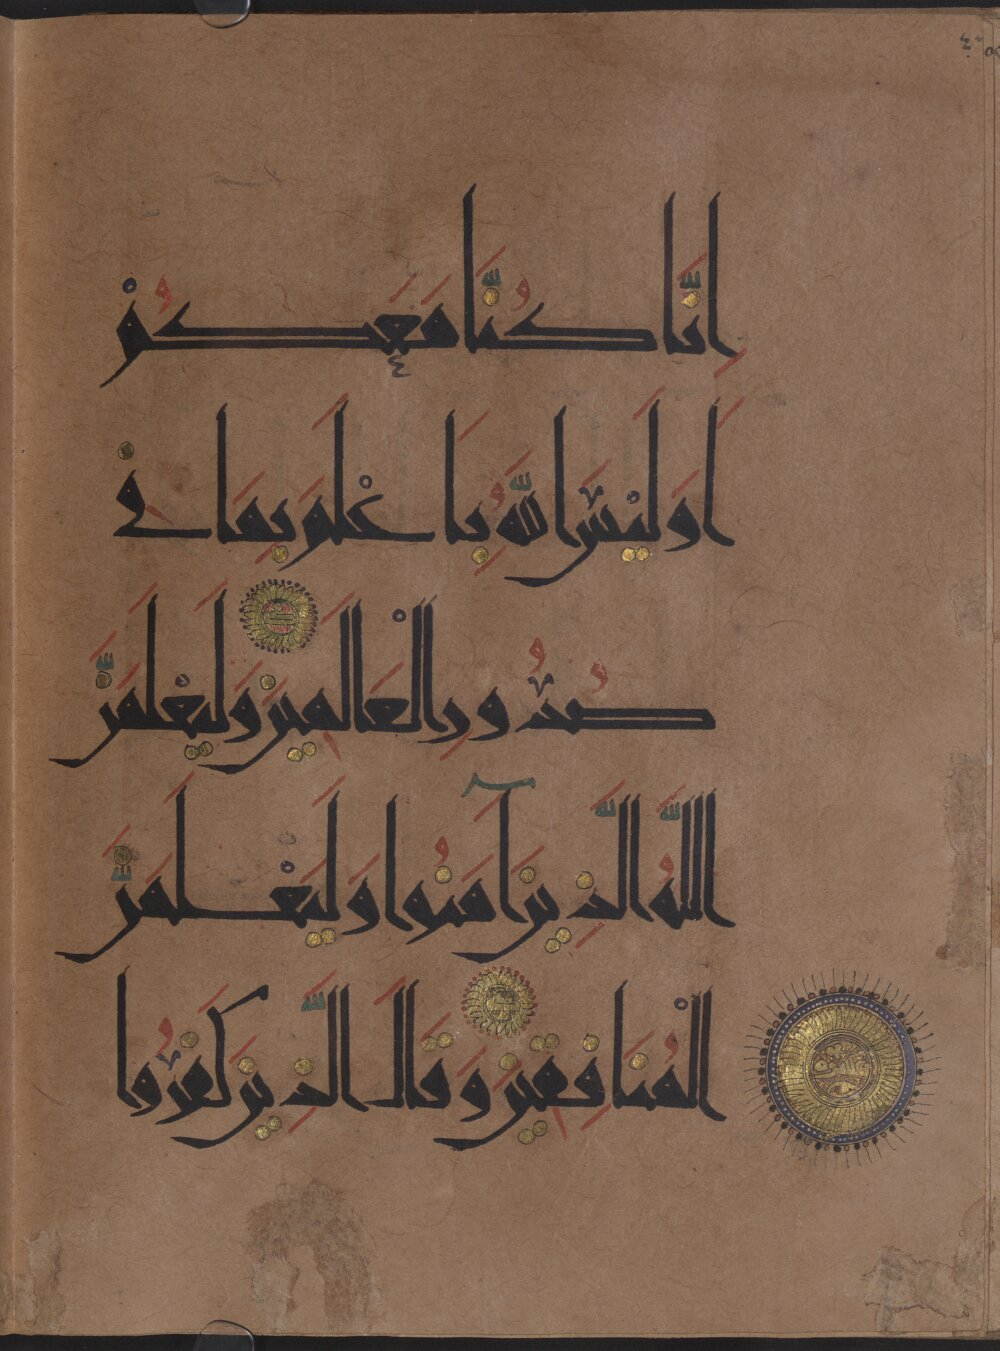 إِنَّا كُنَّا مَعَكُمْ
أَوَلَيْسَ اللَّهُ بِأَعْلَمَ بِمَا فِي
صُدُورِ الْعَالَمِينَ وَلَيَعْلَمَنَّ
اللَّهُ الَّذِينَ آمَنُوا وَلَيَعْلَمَنَّ
الْمُنَافِقِينَ وَقَالَ الَّذِينَ كَفَرُوا